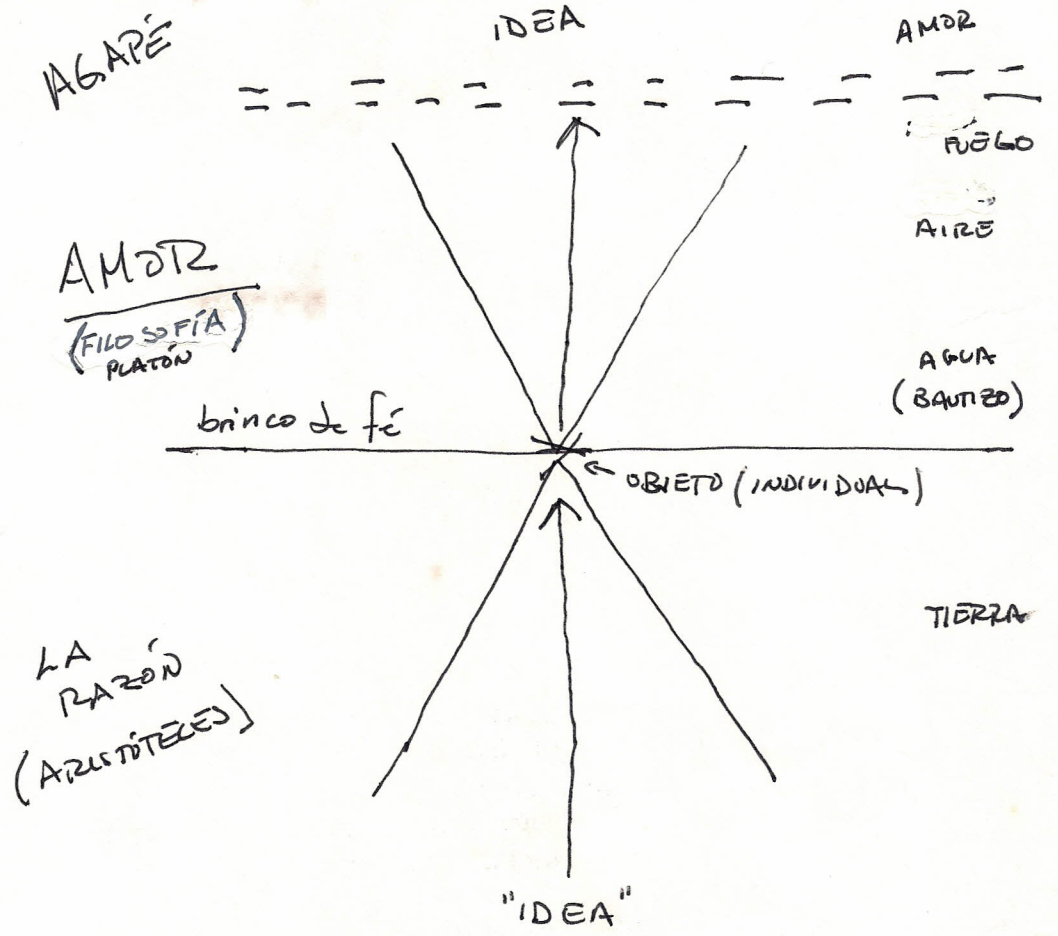 AGAPÉ
IDEA
AMOR
FUEGO
AIRE
AMOR
(FILOSOFÍA)
PLATÓN
AGUA
(BAUTIZO)
brinco de fé
OBJETO (INDIVIDUAL)
TIERRA
LA
RAZÓN
(ARISTÓTELES)
"IDEA"